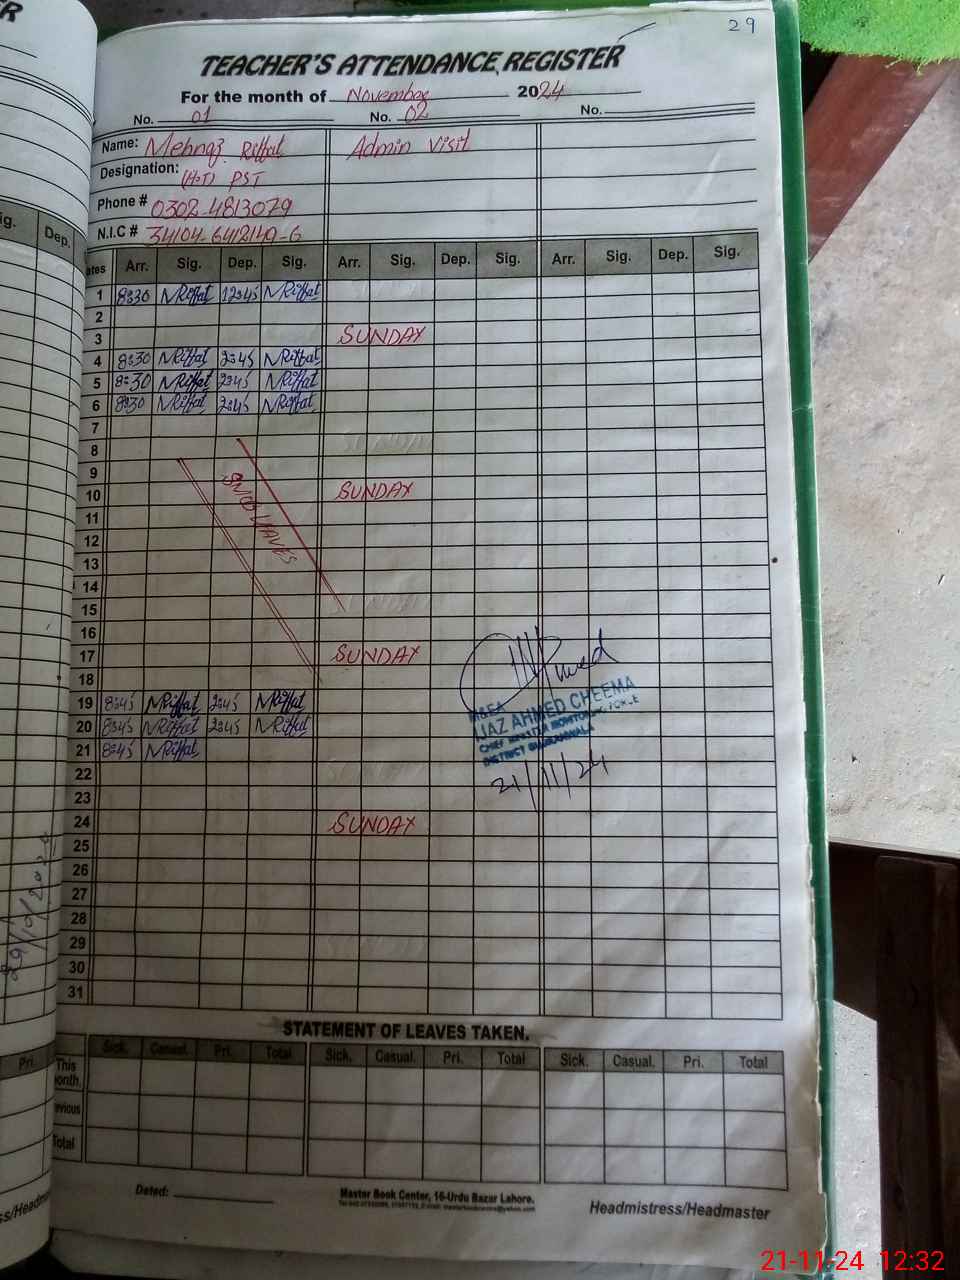 29
TEACHER'S ATTENDANCE REGISTER
For the month of November 2024
No. 01 No. 02 No.
Name: Mehnaz Riffat Admin Visit
Designation: (H.T) PST
Phone # 0302-4813079
N.I.C # 34104-6412149-6
Dep. ates Arr. Sig. Dep. Sig. Arr. Sig. Dep. Sig. Arr. Sig. Dep. Sig.
1 8:30 NRiffat 12:45 NRiffat
2
3 SUNDAY
4 8:30 NRiffat 2:45 NRiffat
5 8:30 NRiffat 2:45 NRiffat
6 8:30 NRiffat 2:45 NRiffat
7
8
9
10 SUNDAY
11
12
LEAVES
13
14
15
16
17 SUNDAY
18
19 8:45 NRiffat 2:45 NRiffat
20 8:45 NRiffat 2:45 NRiffat
21 8:45 NRiffat
M&EA
IJAZ AHMED CHEEMA
CHIEF MINISTER MONITORING FORCE
DISTRICT GUJRANWALA
21/11/24
22
23
24 SUNDAY
25
26
27
28
29
30
31
STATEMENT OF LEAVES TAKEN.
Pri. Sick. Casual. Pri. Total Sick. Casual. Pri. Total Sick. Casual. Pri. Total
This onth.
evious
Total
Dated: Master Book Center, 16-Urdu Bazar Lahore. Headmistress/Headmaster
21-11-24 12:32